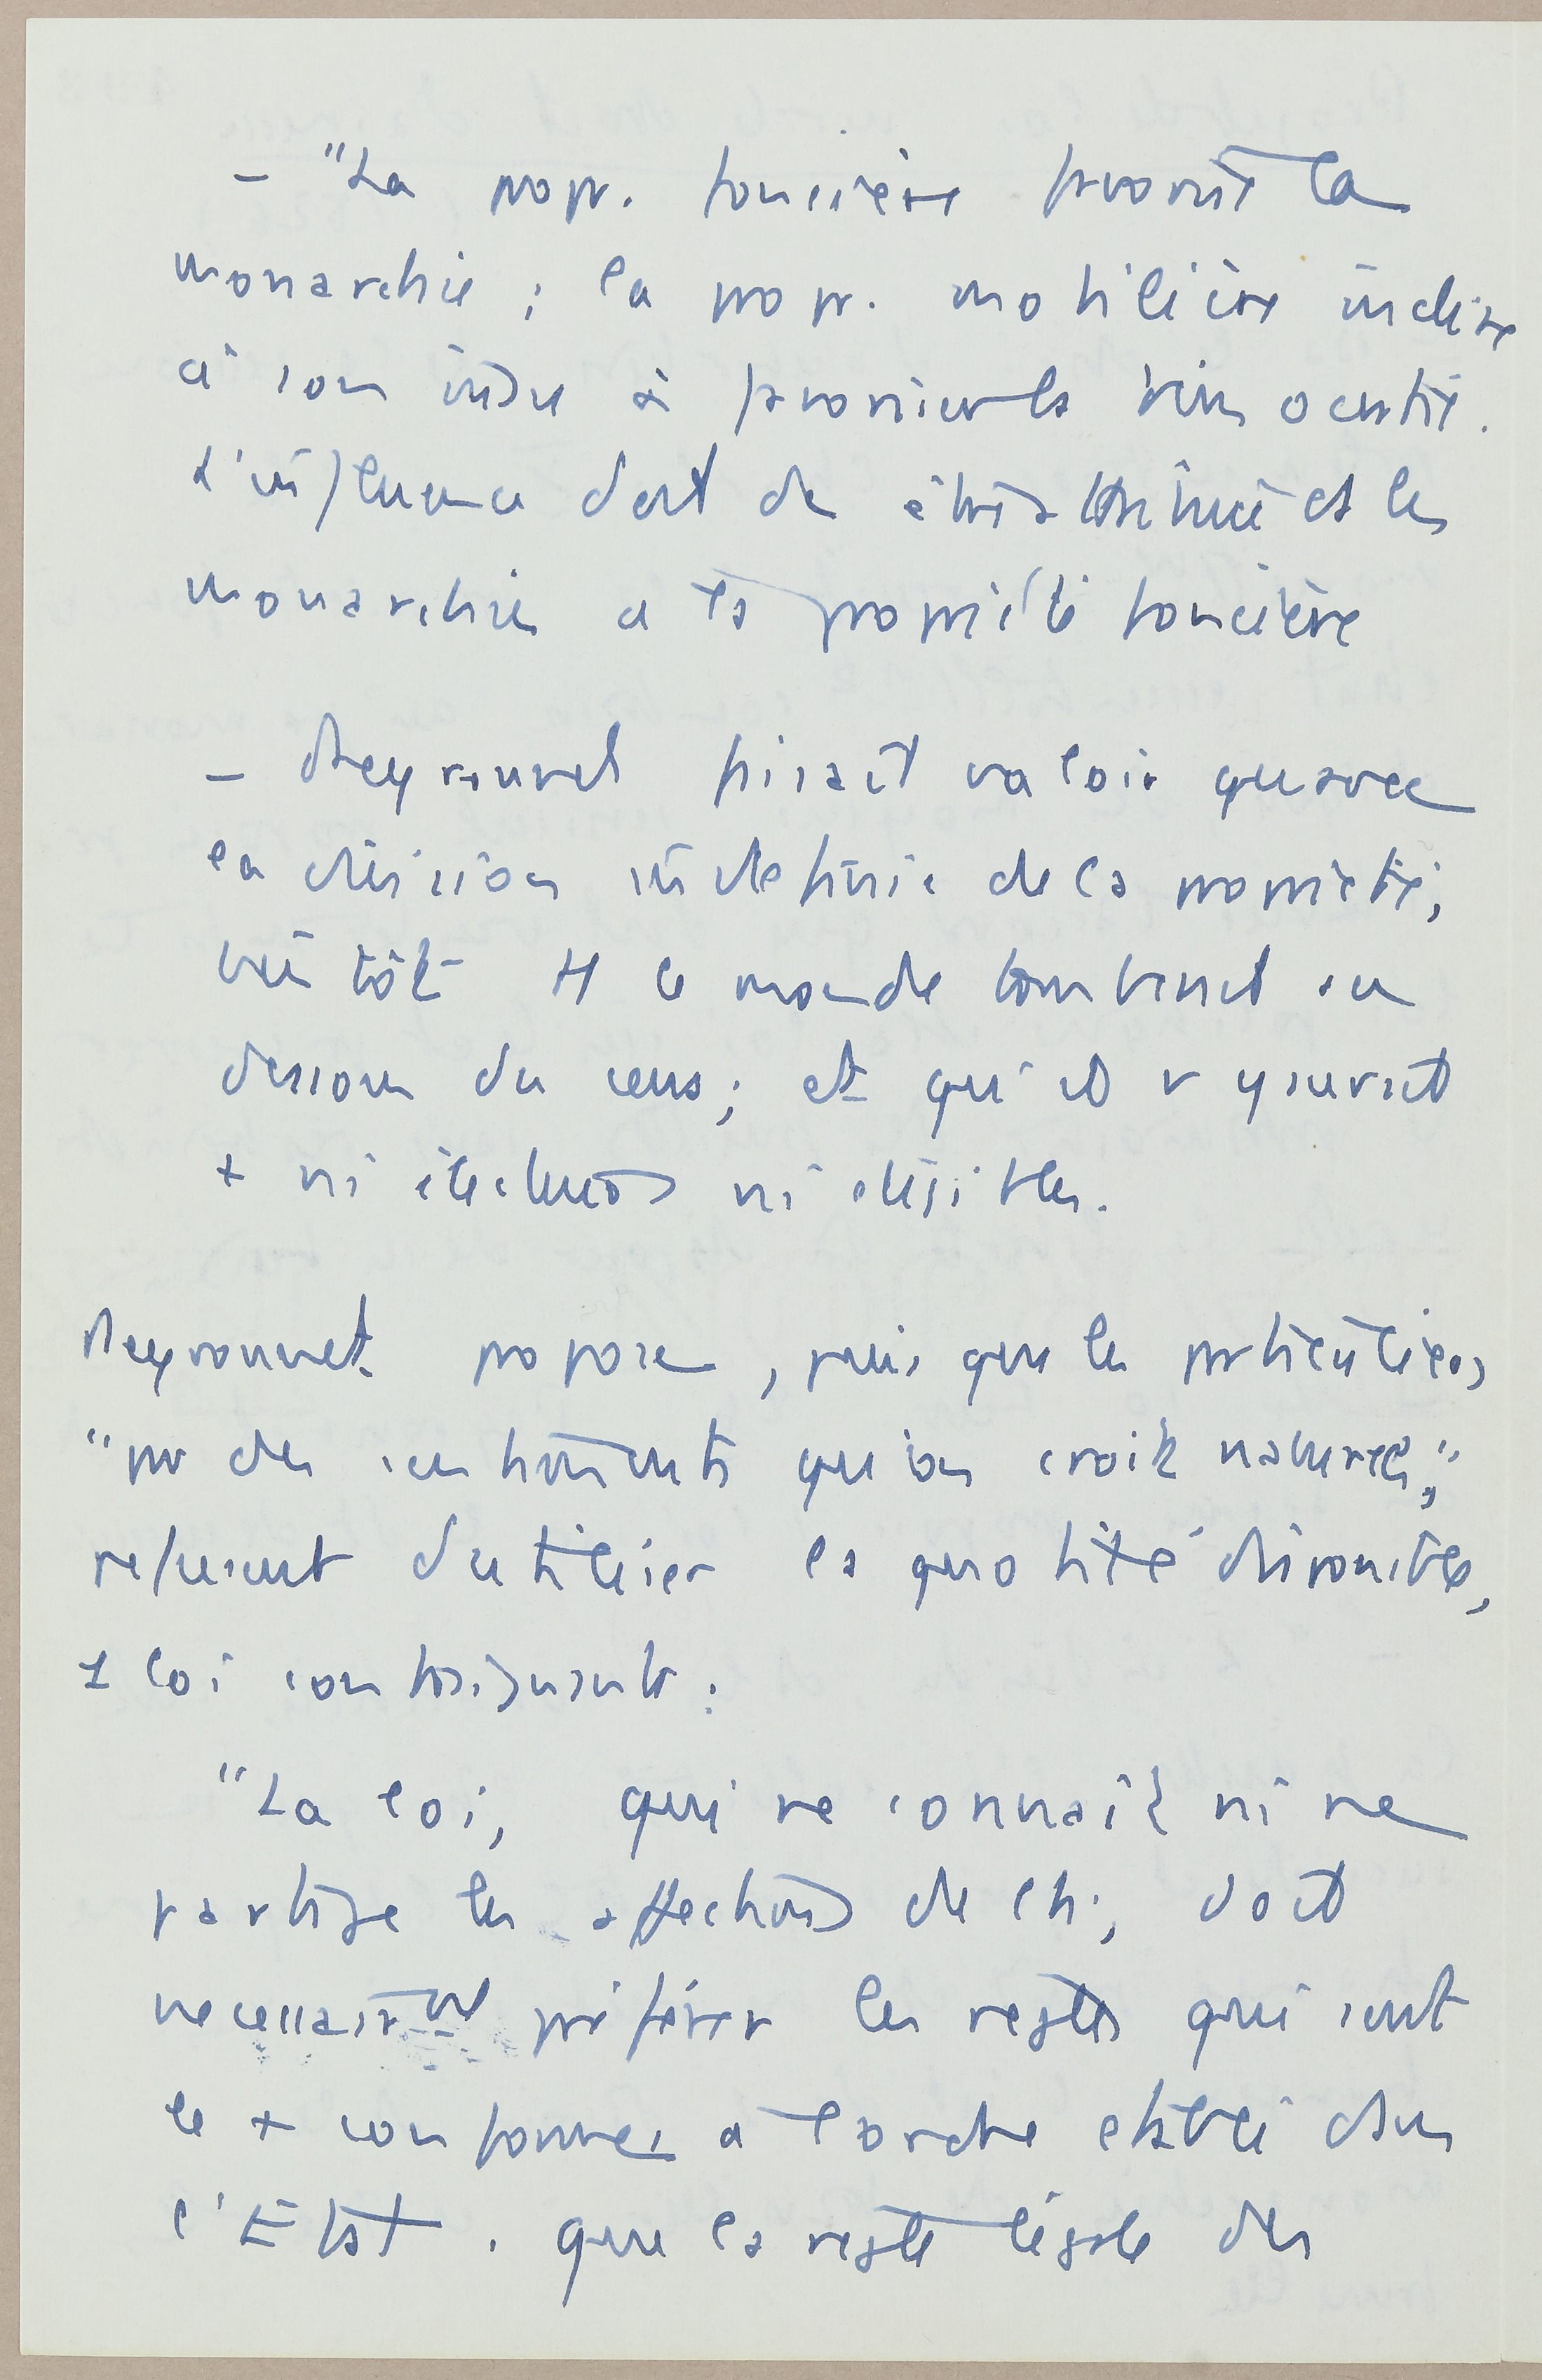 - "La popr. foncière favorise la
monarchie ; la popr. mobilière incline
à son insu à favoriser la démocratie.
L'influence doit de être restituée et les
monarchies a la propriété foncière
- Peyronnet faisait valoir qu'avec
la division indéfinie de la propriété,
bientôt tt le monde tomberait en
dessous du cens ; et qu'il n y aurait
+ ni électeurs ni éligibles.
Peyronnet propose, puis que les particuliers,
"par des sentiments qu'on croit naturels,"
refusent d'utiliser la quotité disponible,
1 loi contraignante :
"La loi, qui ne connait ni ne
partage les affections de ch., doit
necessairmt préférer les regles qui sont
le + conformes a l'ordre établi dans
l'Etat. que la regle légale des